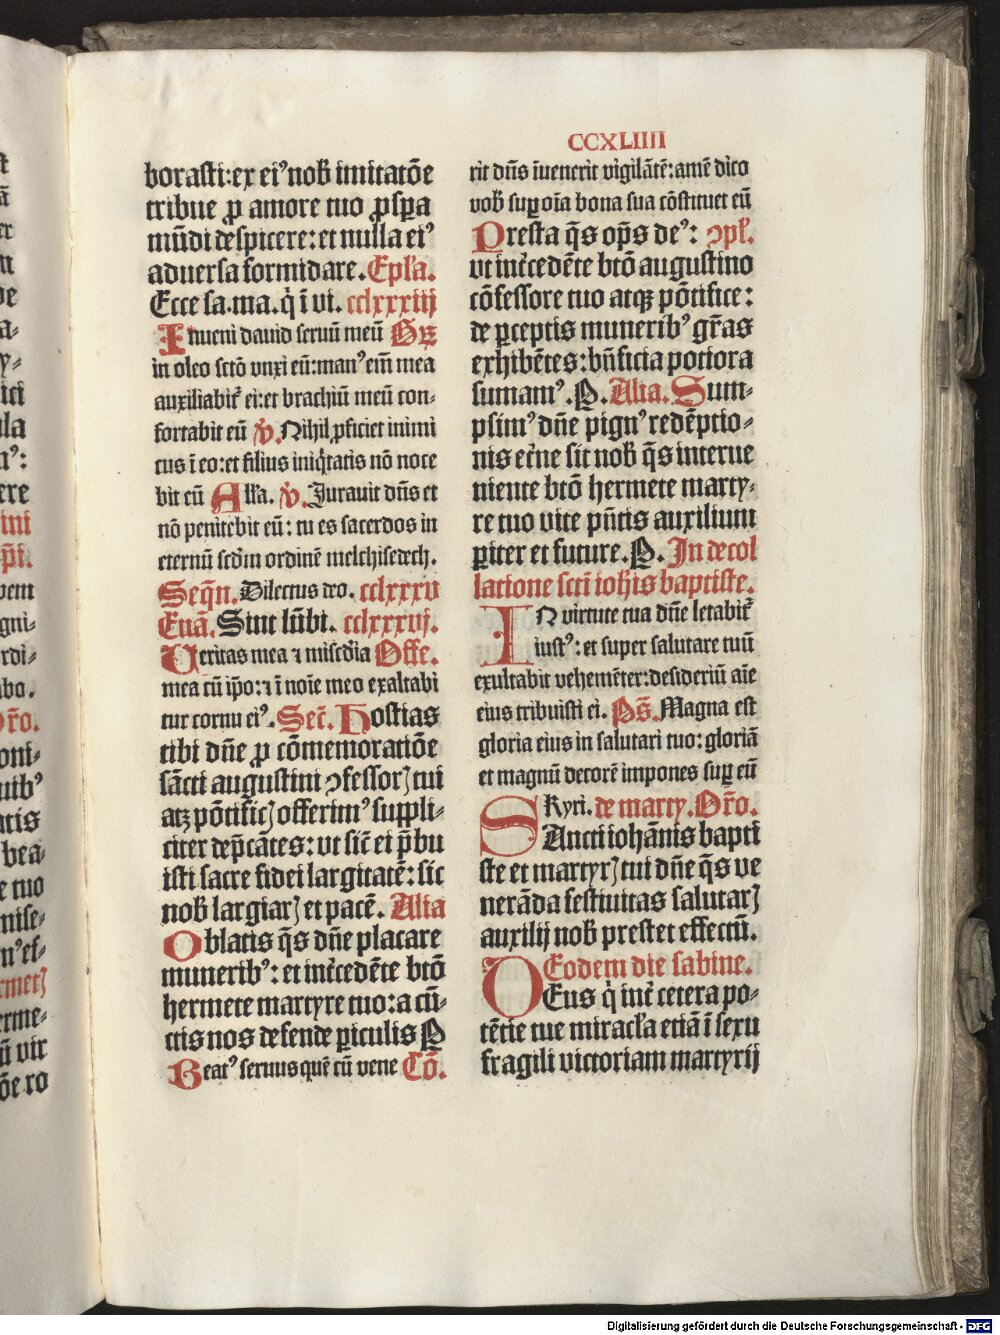 CCXLIIII
borasti: ex eiꝰ nob̄ imitatōe
tribue ꝓ amore tuo ꝓspa
mūdi despicere: et nulla eiꝰ
aduersa formidare. Epl̄a.
Ecce sa. ma. q̇ ī vi. cclxxxiij
Inueni dauid seruū meū Gꝛ
in oleo sctō vnxi eū: manꝰ em̄ mea
auxiliabit᷑ ei: et brachiū meū con-
fortabit eū ℣. Nihil ꝓficiet inimi
cus ī eo: et filius iniq̇tatis nō noce
bit eū All̓a. ℣. Jurauit dn̄s et
nō penitebit eū: tu es sacerdos in
eternū scd̄m ordinē melchisedech.
Seq̄n. Dilectus deo. cclxxxv
Euā. Sint lūbi. cclxxxvj.
Veritas mea ⁊ misc̄dia Offe.
mea cū ip̄o: ⁊ ī noīe meo exaltabi
tur cornu eiꝰ. Sec̄. Hostias
tibi dn̄e ꝓ cōmemoratiōe
sācti augustini ꝯfessorꝭ tui
atqꝫ pōtificꝭ offerimꝰ suppli-
citer dep̄cātes: vt sic̄ ei p̄bu
isti sacre fidei largitatē: sic
nob̄ largiarꝭ et pacē. Alia
Oblatis q̄s dn̄e placare
muneribꝰ: et int̄cedēte btō
hermete martyre tuo: a cū-
ctis nos defende ꝑiculis P
Beatꝰ seruus quē cū vene Cō.
rit dn̄s īuenerit vigilātē: amē dico
vob̄ suꝑ oīa bona sua cōstituet eū
Presta q̄s op̄s deꝰ: ꝯpl̄.
vt int̄cedēte btō augustino
cōfessore tuo atqꝫ pōtifice:
de ꝑceptis muneribꝰ gr̄as
exhibētes: bn̄ficia potiora
sumamꝰ. P. Alia. Sum-
psimꝰ dn̄e pignꝰ redēptio-
nis et̄ne sit nob̄ q̄s interue
niente btō hermete marty-
re tuo vite pn̄tis auxilium
ꝑiter et future. P. In decol
latione scti ioh̄is baptiste.
IN virtute tua dn̄e letabit᷑
iustꝰ: et super salutare tuū
exultabit vehemēter: desideriū aīe
eius tribuisti ei. Ps̄. Magna est
gloria eius in salutari tuo: gloriā
et magnū decorē impones suꝑ eū
Kyri. de marty. Or̄o.
SAncti iohānis bapti
ste et martyrꝭ tui dn̄e q̄s ve
nerāda festiuitas salutarꝭ
auxilij nob̄ prestet effectū.
Eodem die sabine.
DEus q̇ int̄ cetera po-
tētie tue miracl̓a etiā ī sexu
fragili victoriam martyrij
Digitalisierung gefördert durch die Deutsche Forschungsgemeinschaft - DFG